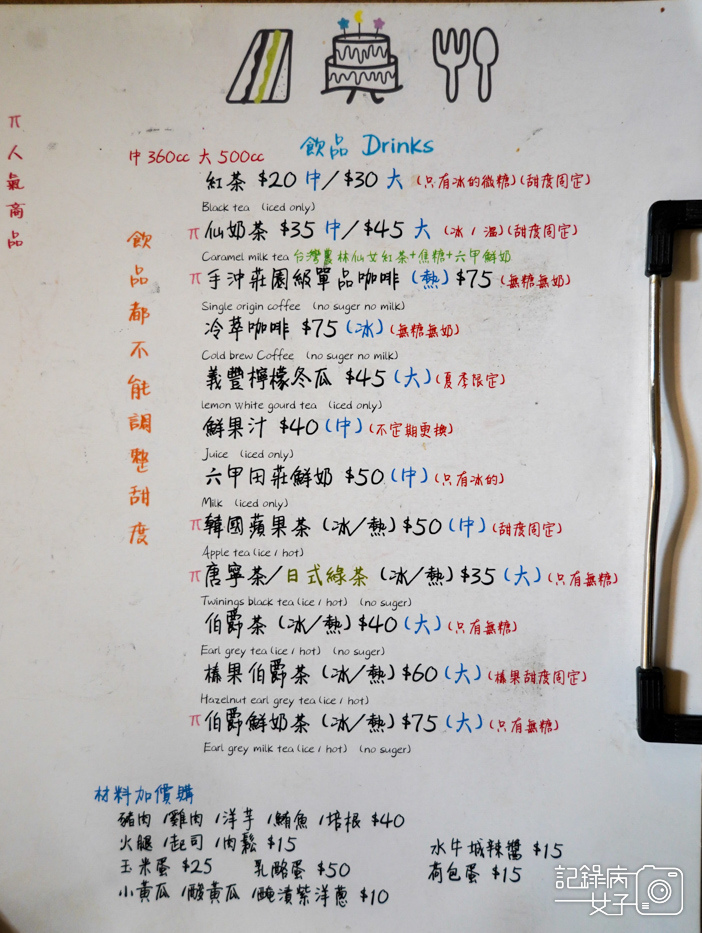 π人氣商品
中360cc 大500cc
飲品 Drinks
飲品都不能調整甜度
紅茶 $20 中/$30 大 (只有冰的微糖)(甜度固定)
Black tea (iced only)
π仙奶茶 $35 中/$45 大 (冰/溫)(甜度固定)
Caramel milk tea 台灣農林仙女紅茶+焦糖+六甲鮮奶
π手沖莊園級單品咖啡 (熱) $75 (無糖無奶)
Single origin coffee (no suger no milk)
冷萃咖啡 $75 (冰) (無糖無奶)
Cold brew Coffee (no suger no milk)
義豐檸檬冬瓜 $45 (大) (夏季限定)
lemon white gourd tea (iced only)
鮮果汁 $40 (中) (不定期更換)
Juice (iced only)
六甲田莊鮮奶 $50 (中) (只有冰的)
Milk (iced only)
π韓國蘋果茶 (冰/熱) $50 (中) (甜度固定)
Apple tea (ice / hot)
π唐寧茶/日式綠茶 (冰/熱) $35 (大) (只有無糖)
Twinings black tea (ice / hot) (no suger)
伯爵茶 (冰/熱) $40 (大) (只有無糖)
Earl grey tea (ice / hot) (no suger)
榛果伯爵茶 (冰/熱) $60 (大) (榛果甜度固定)
Hazelnut earl grey tea (ice / hot)
π伯爵鮮奶茶 (冰/熱) $75 (大) (只有無糖)
Earl grey milk tea (ice / hot) (no suger)
材料加價購
豬肉/雞肉/洋芋/鮪魚/培根 $40
火腿/起司/肉鬆 $15
水牛城辣醬 $15
玉米蛋 $25 乳酪蛋 $50
荷包蛋 $15
小黃瓜/酸黃瓜/醃漬紫洋蔥 $10
記錄病女子